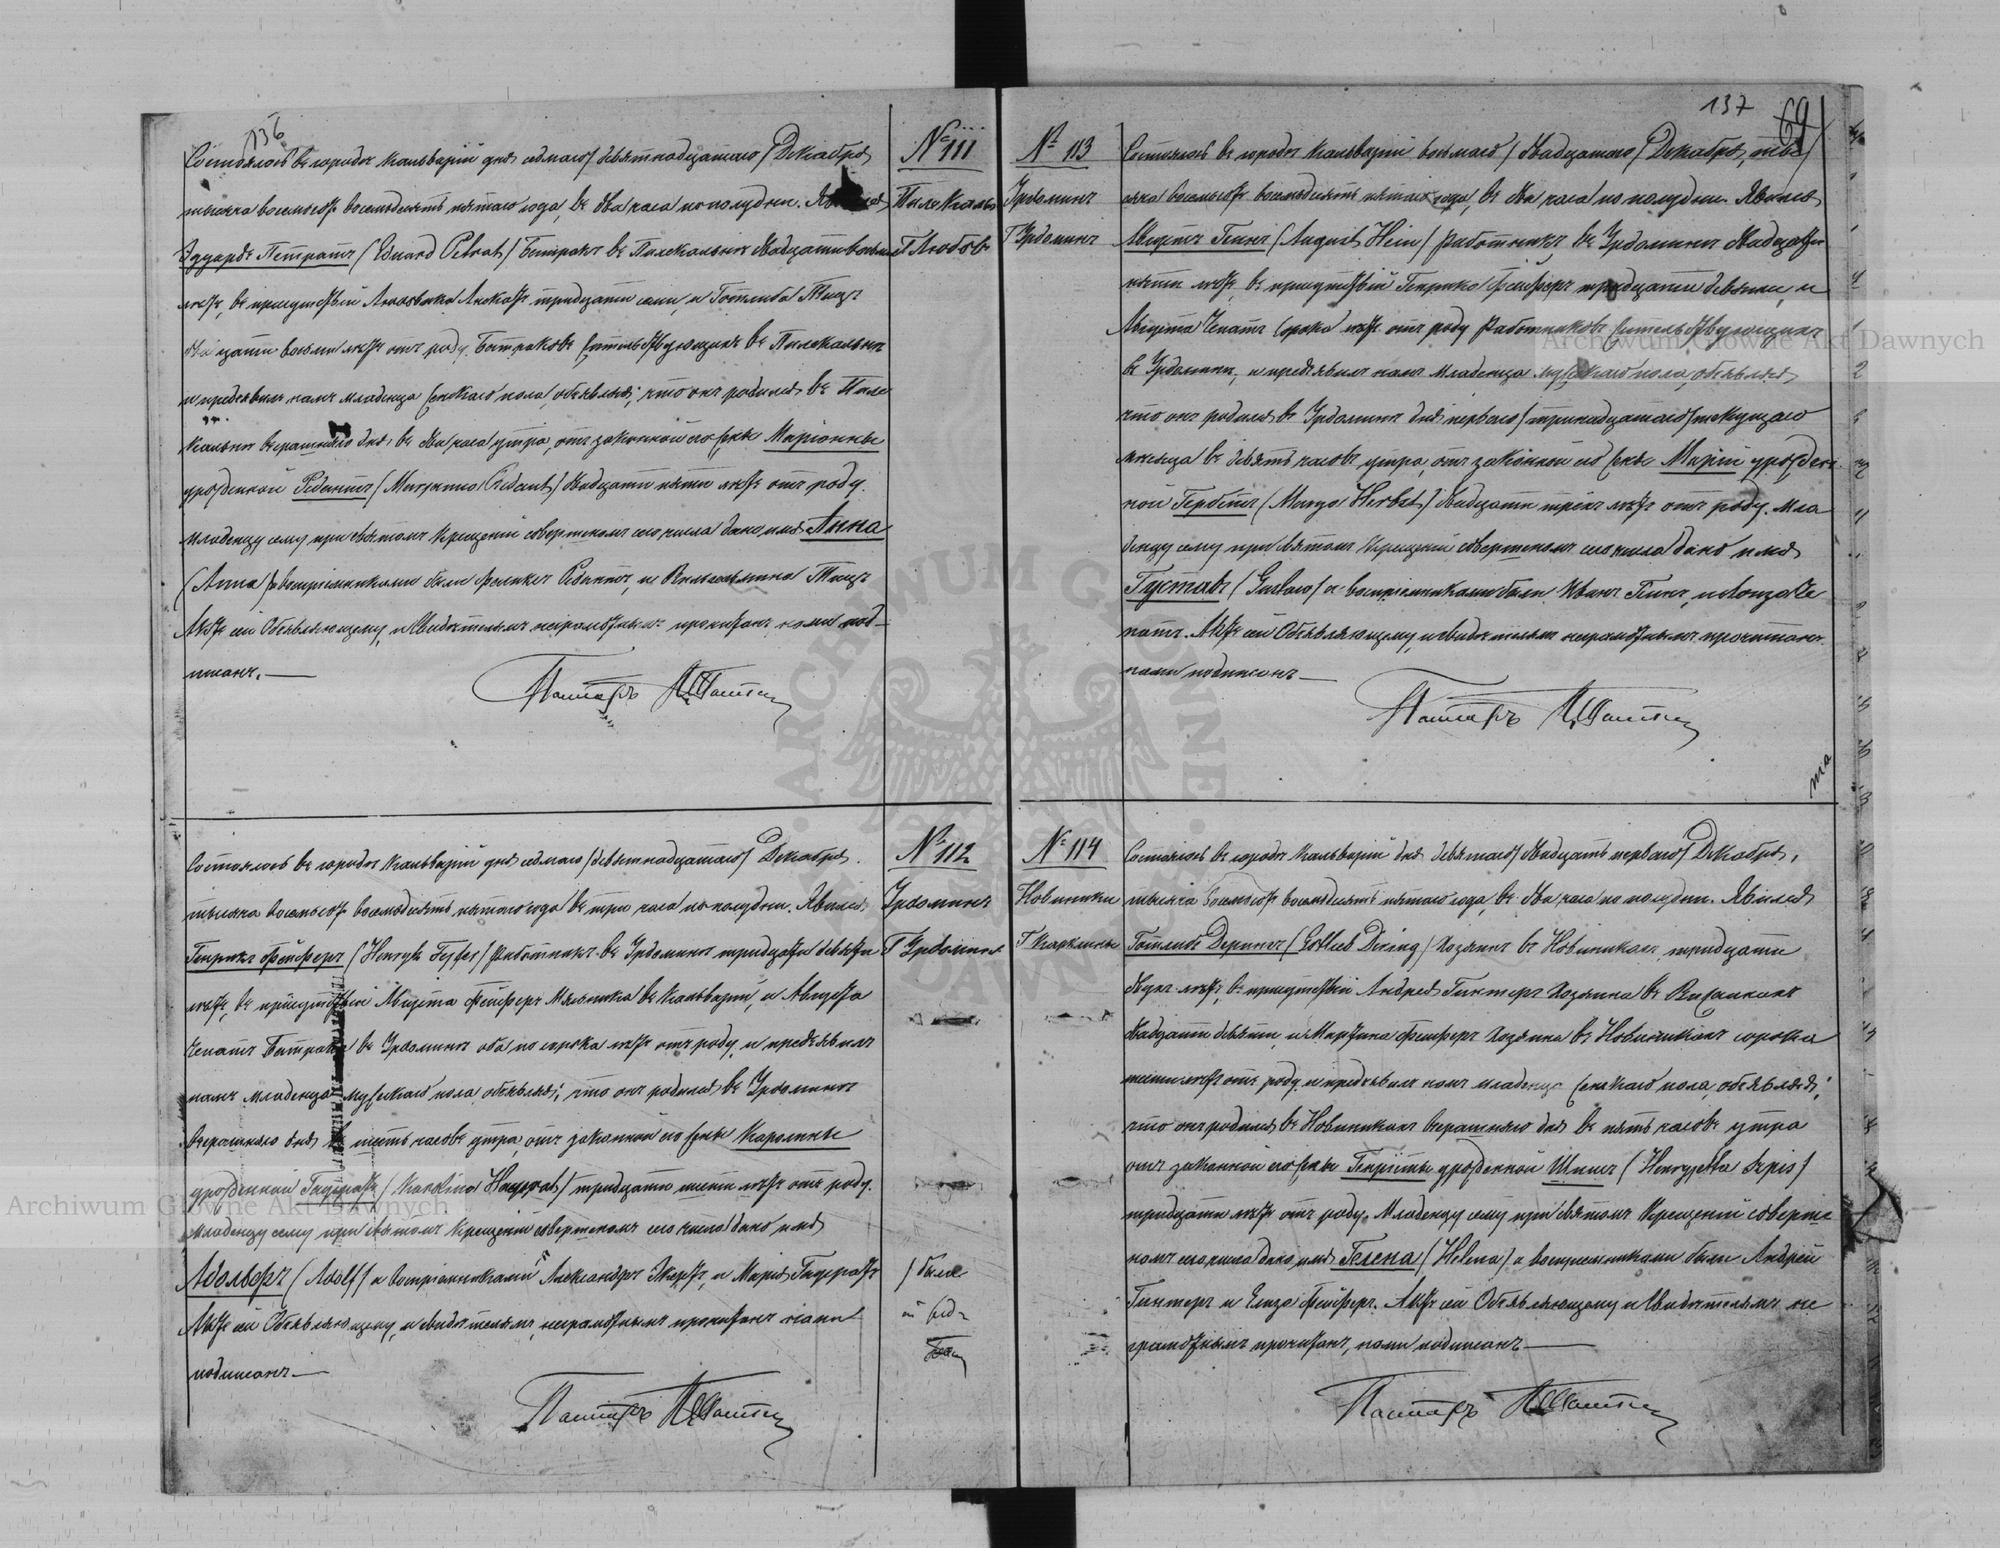 136
Состоялось въ городѣ Кальваріи дня седьмаго / девятнадцатаго / Декабря
тысяча восемьсотъ восемьдесятъ пятаго года, въ два часа по полудни. Явился
Эдуардъ Петратъ / Eduard Petrat / батракъ въ Пилекальнѣ двадцати восьми
лѣтъ, въ присутствіи Людвика тридцати семи, и Готлиба Тицъ
двадцати восьми лѣтъ отъ роду, батраковъ жительствующихъ въ Пилекальнѣ
и предъявилъ намъ младенца женскаго пола, объявляя; что онъ родился въ Пиле
кальнѣ вчерашняго дня въ два часа утра, отъ законной его жены Маріонны
урожденной Редантъ двадцати пяти лѣтъ отъ роду.
Младенцу сему при святомъ крещеніи совершенномъ сего числа дано имя Анна
/ Anna / а воспріемниками были Феликсъ Редантъ, и Вильгельмина Тицъ
Актъ сей Объявляющему, и Свидѣтелямъ неграмотнымъ прочитанъ, нами под-
писанъ.
Пасторъ
№ 111
Пилекальн
Г Любовъ
Состоялось въ городѣ Кальваріи дня седьмаго / девятнадцатаго / Декабря
тысяча восемьсотъ восемьдесятъ пятаго года въ три часа по полудни. Явился
Генрикъ Фейферъ / Henryk Fejfer / работникъ въ Урдоминѣ тридцати девяти
лѣтъ, въ присутствіи Августа Фейферъ мясника въ Кальваріи, и Августа
Чепатъ батрака въ Урдоминѣ оба по сорока лѣтъ отъ роду, и предъявилъ
намъ младенца мужескаго пола объявляя; что онъ родился въ Урдоминѣ
вчерашняго дня въ шесть часовъ утра, отъ законной его жены Каролины
урожденной / Karolina / тридцати шести лѣтъ отъ роду.
Младенцу сему при святомъ крещеніи совершенномъ сего числа дано имя
Адольфъ / Adolf / а воспріемниками Александръ Экертъ, и Марія
Актъ сей Объявляющему, и свидѣтелямъ, неграмотнымъ прочитанъ нами
подписанъ.
Пасторъ
№ 112
Урдоминъ
Г Урдоминъ
/ были
137
69
№ 113
Урдоминъ
Г Урдоминъ
Состоялось въ городѣ Кальваріи восьмаго / двадцатаго / Декабря, тыс
яча восемьсотъ восемьдесятъ пятаго года, въ два часа по полудни. Явился
Августъ Гейнъ / August Hein / работникъ, въ Урдоминѣ двадцати
пяти лѣтъ, въ присутствіи Генрика Фейферъ тридцати девяти, и
Августа Чепатъ сорока лѣтъ отъ роду работниковъ жительствующихъ
въ Урдоминѣ, и предъявилъ намъ младенца мужескаго пола, объявляя
что онъ родился въ Урдоминѣ дня перваго / тринадцатаго / текущаго
мѣсяца въ девять часовъ утра, отъ законной его жены Маріи урожден-
ной Гербстъ / Marya Herbst / двадцати трехъ лѣтъ отъ роду. Мла
денцу сему при святомъ крещеніи совершенномъ сего числа дано имя
Густавъ / Gustaw / а воспріемниками были Иванъ Гейнъ, и Че
патъ. Актъ сей Объявляющему, и свидѣтелямъ неграмотнымъ прочитанъ
нами подписанъ
Пасторъ
№ 114
Новиники
Г Кирклины
Состоялось въ городѣ Кальваріи дня девятаго / двадцать перваго / Декабря,
тысяча восемьсотъ восемьдесятъ пятаго года, въ два часа по полудни. Явился
Готлибъ Дерингъ / Gotlieb Dering / хозяинъ въ Новиникахъ тридцати
двухъ лѣтъ, въ присутствіи Андрея Гинтеръ хозяина въ
двадцати девяти, и Мартина Фейферъ хозяина въ Новиникахъ сорока
шести лѣтъ отъ роду, и предъявилъ намъ младенца женскаго пола, объявляя;
что онъ родился въ Новиникахъ вчерашняго дня въ пять часовъ утра
отъ законной его жены Генріеты урожденной Шписъ / Henryjetta Szpis /
тридцати лѣтъ отъ роду. Младенцу сему при святомъ крещеніи соверше
номъ сего числа дано имя Гелена / Helena / а воспріемниками были Андрей
Гинтеръ и Елиза Фейферъ. Актъ сей Объявляющему и Свидѣтелямъ не
грамотнымъ прочитанъ, нами подписанъ
Пасторъ
Archiwum Główne Akt Dawnych
Archiwum Główne Akt Dawnych